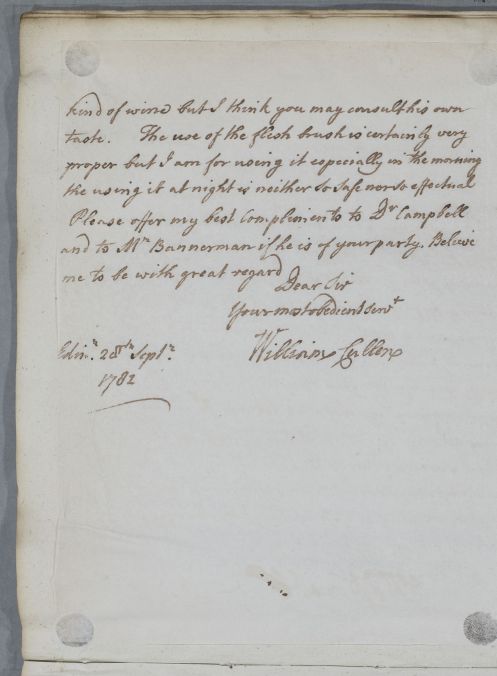 kind of wine but I think you may consult his own
taste. The use of the flesh brush is certainly very
proper but I am for using it especially in the morning
the using it at night is neither so safe nor so effectual
Please offer my best Compliments to Dr Campbell
and to Mr Bannerman if he is of your party. Believe
me to be with great regard
Dear Sir
Your most obedient servt
William Cullen
Edinr. Septr.
1782